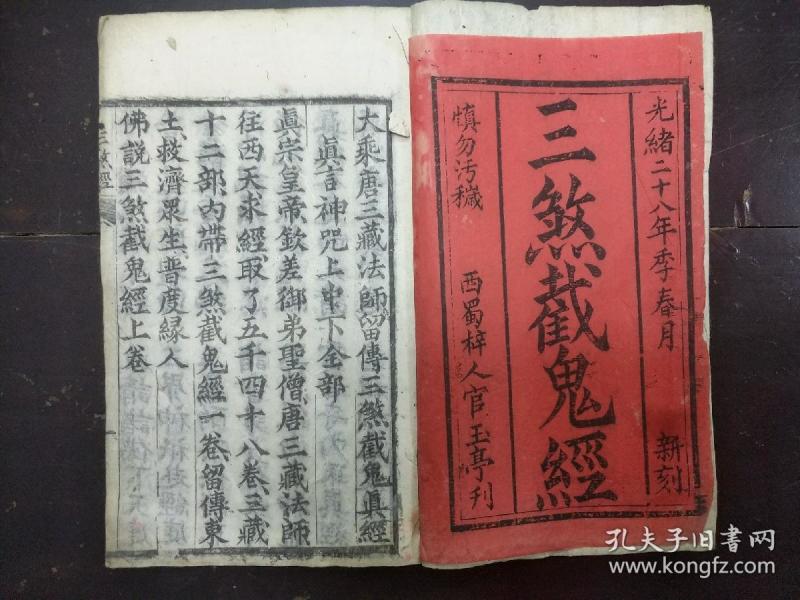 光緒二十八年季春月 新刻
三煞截鬼經
慎勿汚穢 西蜀梓人官玉亭刊
大乘唐三藏法師留傳三煞截鬼眞經
眞言神咒上中下全部
眞宗皇帝欽差御弟聖僧唐三藏法師
往西天求經取了五千四十八卷三藏
十二部內帶三煞截鬼經一卷留傳東
土救濟眾生普度緣人
佛說三煞截鬼經上卷
三煞經
孔夫子旧书网
www.kongfz.com